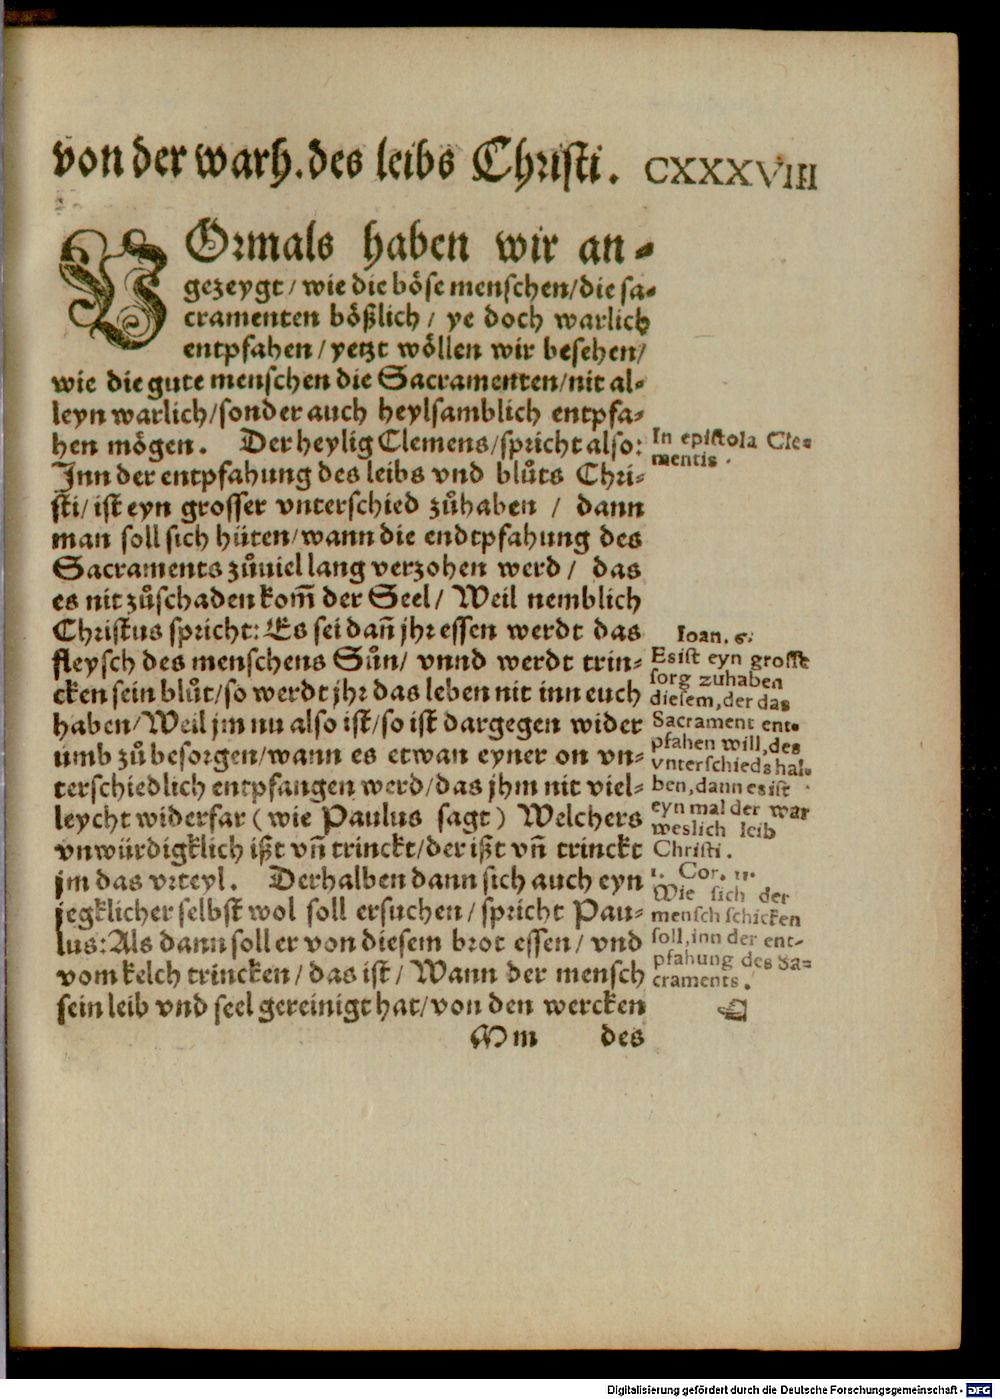 von der warh. des leibs Christi. CXXXVIII
VOrmals haben wir an-
gezeygt / wie die böse menschen / die sa-
cramenten bößlich / ye doch warlich
entpfahen / yetzt wöllen wir besehen /
wie die gute menschen die Sacramenten / nit al-
leyn warlich / sonder auch heylsamblich entpfa-
hen mögen. Der heylig Clemens / spricht also:
Inn der entpfahung des leibs vnd blůts Chri-
sti / ist eyn grosser vnterschied zůhaben / dann
man soll sich hüten / wann die endtpfahung des
Sacraments zůuiel lang verzohen werd / das
es nit zůschaden kom̃ der Seel / Weil nemblich
Christus spricht: Es sei dañ jhr essen werdt das
fleysch des menschens Sůn / vnnd werdt trin-
cken sein blůt / so werdt jhr das leben nit inn euch
haben / Weil jm nu also ist / so ist dargegen wider
umb zů besorgen / wann es etwan eyner on vn-
terschiedlich entpfangen werd / das jhm nit viel-
leycht widerfar (wie Paulus sagt) Welchers
vnwürdigklich ißt vñ trinckt / der ißt vñ trinckt
jm das vrteyl. Derhalben dann sich auch eyn
jegklicher selbst wol soll ersuchen / spricht Pau-
lus: Als dann soll er von diesem brot essen / vnd
vom kelch trincken / das ist / Wann der mensch
sein leib vnd seel gereinigt hat / von den wercken
Mm des
In epistola Cle-
mentis.
Ioan. 6.
Es ist eyn grosse
sorg zuhaben
diesem, der das
Sacrament ent-
pfahen will, des
vnterschieds hal-
ben, dann es ist
eyn mal der war
weslich leib
Christi.
1. Cor. 11.
Wie sich der
mensch schicken
soll, inn der ent-
pfahung des Sa-
craments.
Digitalisierung gefördert durch die Deutsche Forschungsgemeinschaft - DFG